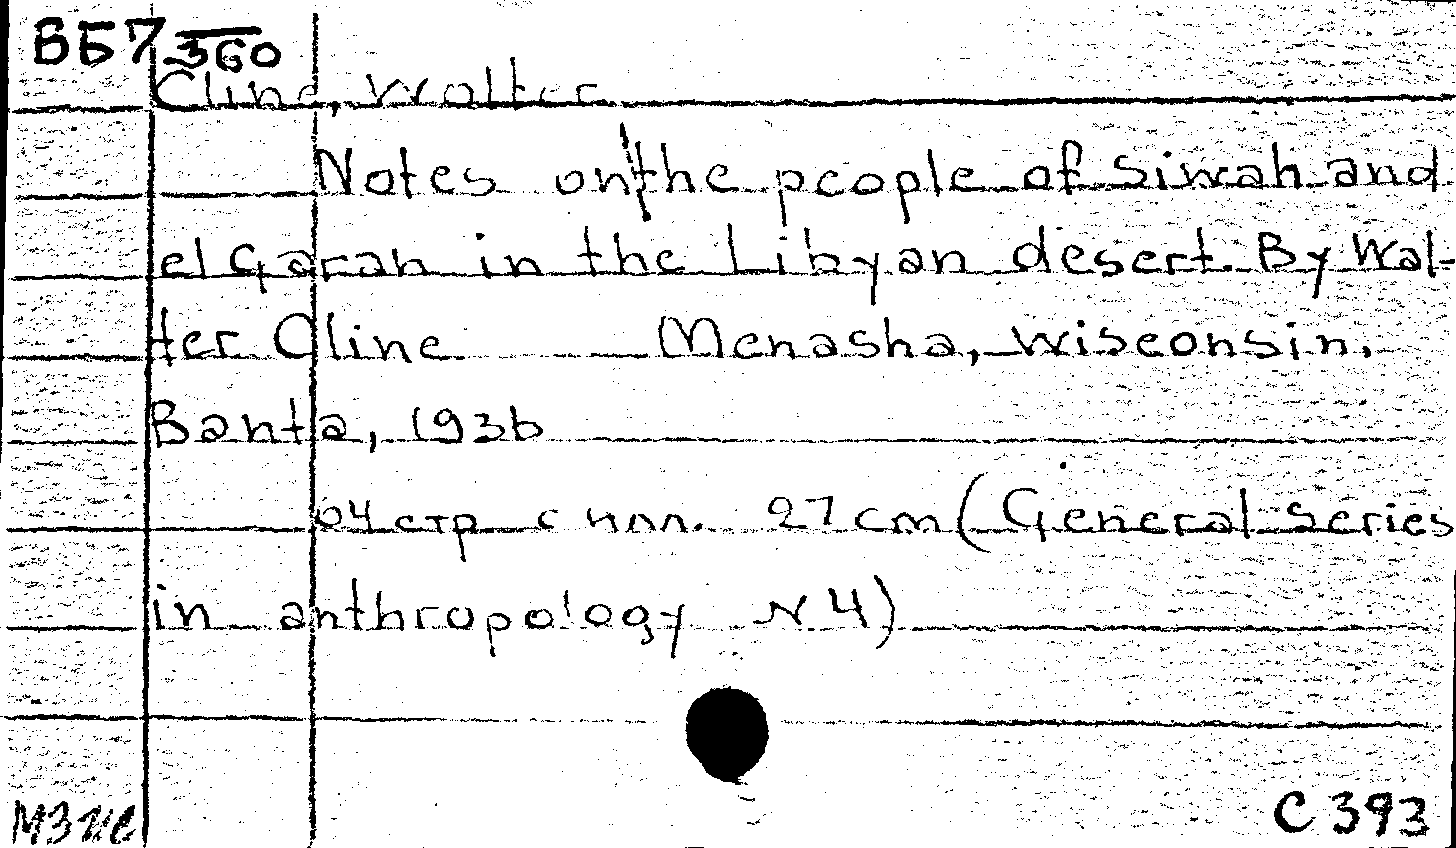 В57 360
Cline, Walter
Notes on the people of Siwah and
el Garah in the Libyan desert. By Wal-
ter Cline Menasha, Wisconsin,
Banta, 1936
64 стр с илл. 27 cm (General series
in anthropology N 4)
C 393